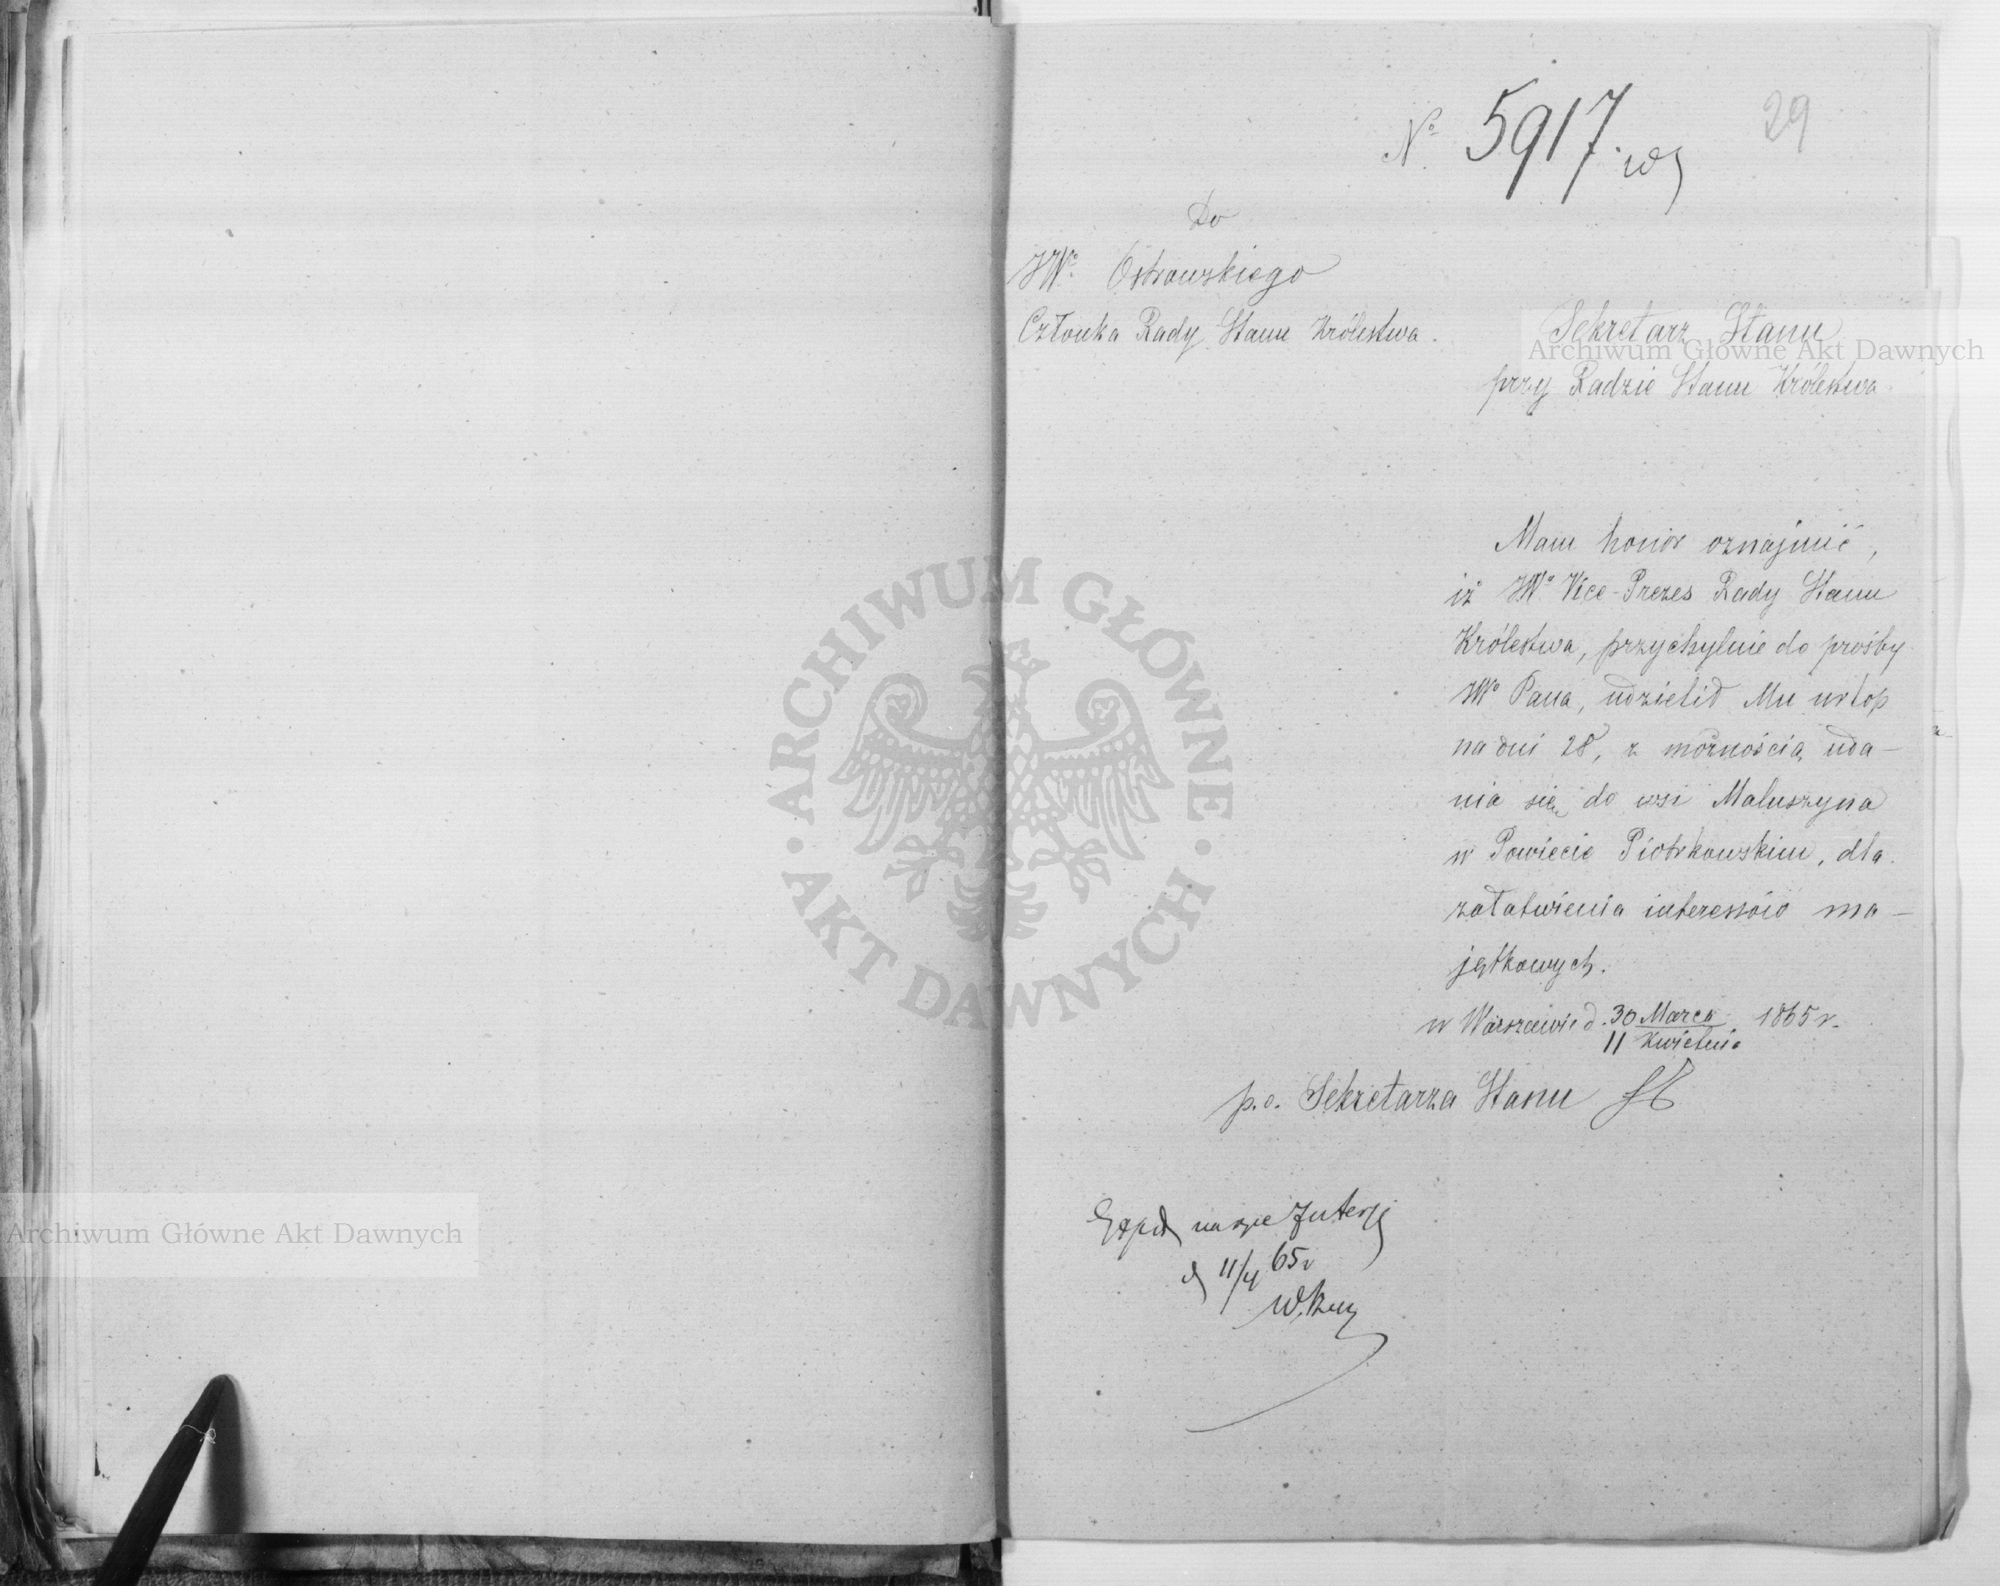 29
№ 5917.
Do
JWo Ostrowskiego
Członka Rady Stanu Królestwa.
Sekretarz Stanu
przy Radzie Stanu Królestwa.
Mam honor oznajmić,
iż JWo Vice-Prezes Rady Stanu
Królestwa, przychylnie do prośby
JWo Pana, udzielił Mu urlop
na dni 28, z możnością uda-
nia się do wsi Maluszyna
w Powiecie Piotrkowskim, dla
załatwienia interessów ma-
jątkowych.
w Warszawie d. 30 Marca 1865 r.
11 Kwietnia
p.o. Sekretarza Stanu
d 11/4 65 r
Archiwum Główne Akt Dawnych
ARCHIWUM GŁÓWNE · AKT DAWNYCH ·
Archiwum Główne Akt Dawnych